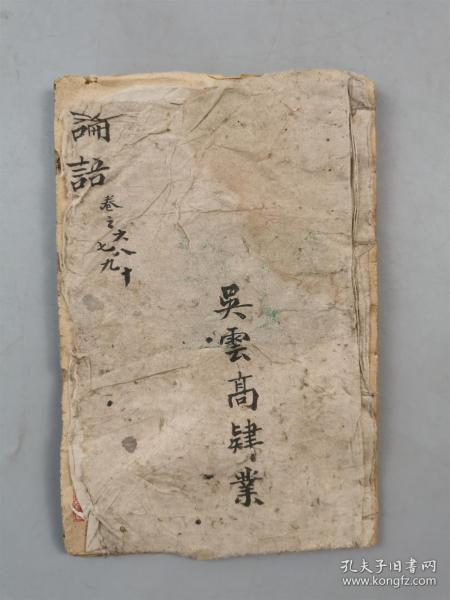 論語
卷之六八十
七九
吳雲高肄業
孔夫子旧书网
www.kongfz.com